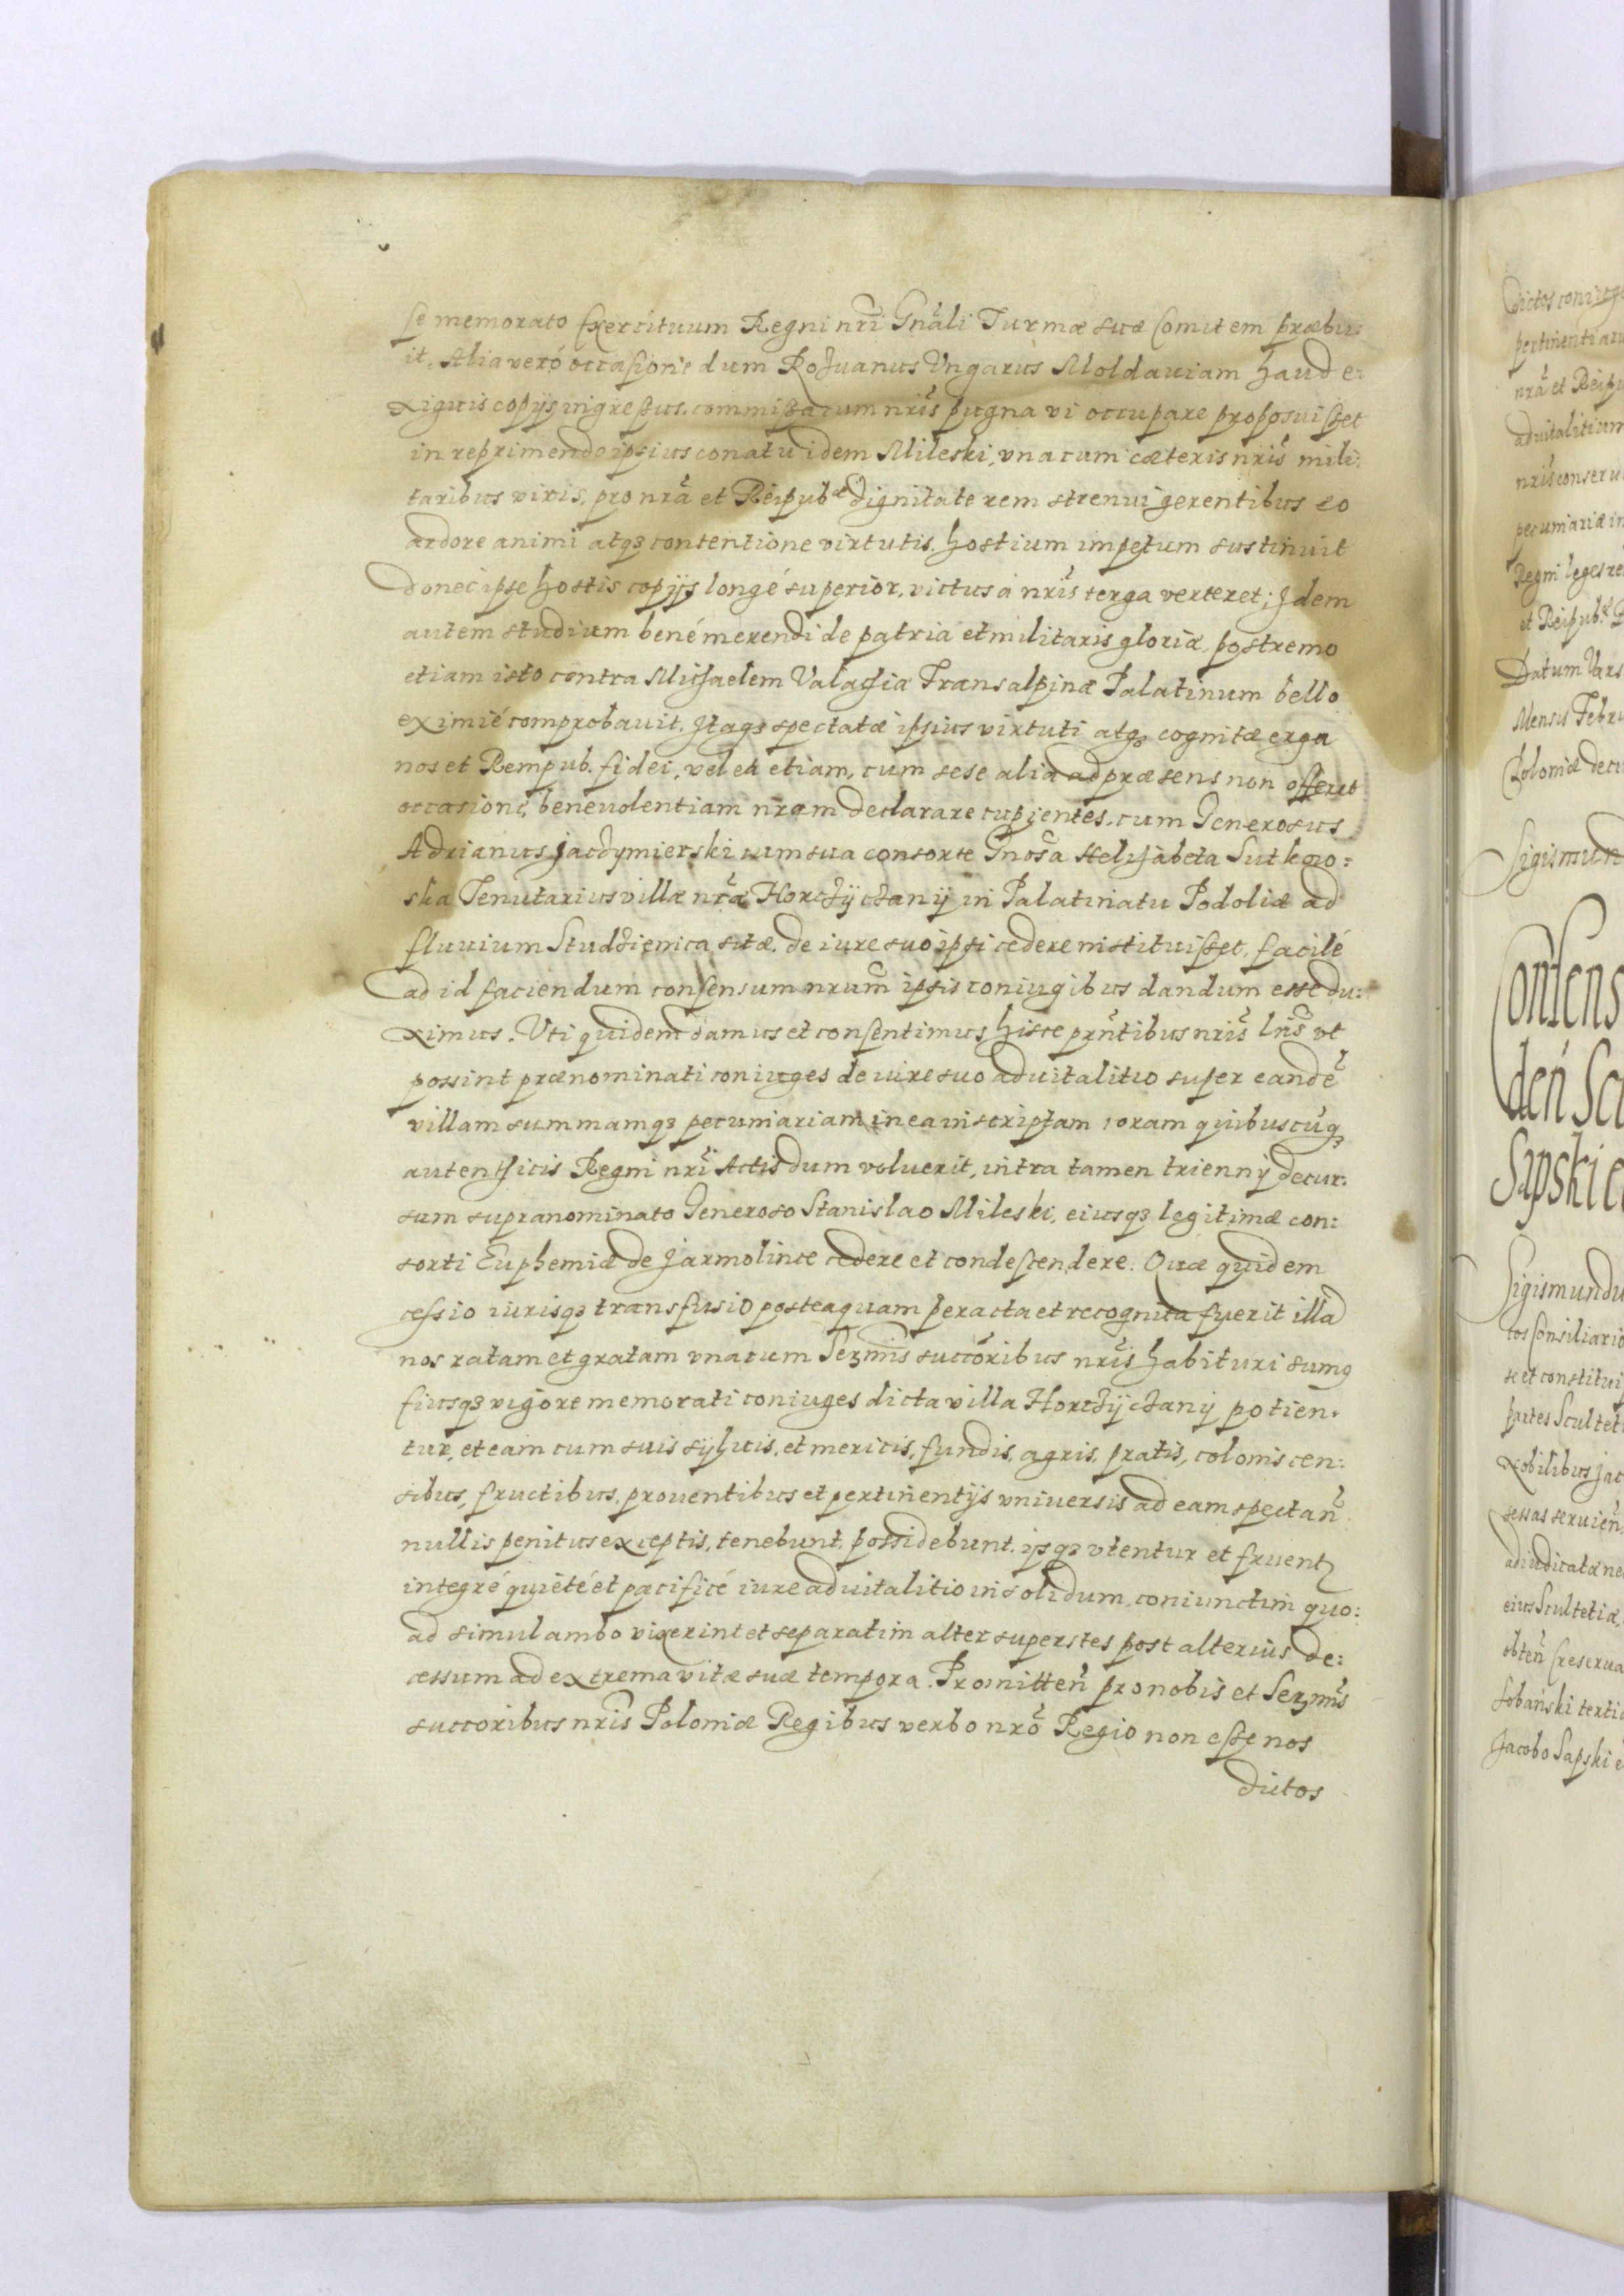 se memorato Exercituum Regni nrĩ Gnãli Turmæ suæ Comitem præbu:
it. Alia veró occasione dum Rozuanus Vngarus Moldauiam haud e:
xiguis copijs ingressus. commissa cum nrĩs pugna vi occupare proposuisset
in reprimendo ipsius conatu idem Mileski, vna cum cæteris nrĩs mili:
taribus viris, pro nrã et Reipub: dignitate rem strenui gerentibus eo
ardore animi atqȝ contentione virtutis. hostium impetum sustinuit
donec ipse hostis copijs longé superior, victus á nrĩs terga verteret; Idem
autem studium bené merendi de patria et militaris gloriæ, postremo
etiam isto contra Michaelem Valachiæ Transalpinæ Palatinum bello
eximié comprobauit. Itaqȝ spectatæ ipsius virtuti atqȝ cognitæ erga
nos et Rempub. fidei, vel ea etiam, cum sese alia ad præsens non offerret
occasione, benevolentiam nram declarare cupientes. cum Generosus
Adrianus Jacdymierski cum sua consorte Gnosa Helizabeta Sutkow:
ska Tenutarius villæ nrãe Horczyczany in Palatinatu Podoliæ ad
fluuium Studzienica sitæ. de iure suo ipsi cedere instituisset, facilé
ad id faciendum consensum nrum ipsis coniugibus dandum esse du:
ximus. Vti quidem damus et consentimus hisce prñtibus nrĩs lrĩs vt
possint prænominati coniuges de iure suo aduitalitio super eandẽ
villam summamqȝ pecuniariam in ea inscriptam coram quibuscũqȝ
autenthicis Regni nrĩ Actis dum voluerit, intra tamen triennij decur:
sum supranominato Generoso Stanislao Mileski, eiusqȝ legitimæ con:
sorti Euphemiæ de Jarmolince cedere et condescendere. Quæ quidem
cessio iurisqȝ transfusio posteaquam peracta et recognita fuerit illã
nos ratam et gratam vna cum Sermis succõribus nrĩs habituri sumꝯ
Eiusqȝ vigore memorati coniuges dicta villa Horczyczany potien:
tur, et eam cum suis syluis, et mericis, fundis, agris, pratis, colonis cen:
sibus, fructibus, prouentibus et pertinentijs vniuersis ad eam spectañ
nullis penitus exceptis, tenebunt, possidebunt, ijsqȝ vtentur et fruentꝛ
integré quiété et pacificé iure aduitalitio in solidum, coniunctim quo:
ad simul ambo vixerint et separatim alter superstes post alterius de:
cessum ad extrema vitæ suæ tempora. Promitteñ pro nobis et Sermĩs
succoribus nrĩs Poloniæ Regibus verbo nrõ Regio non esse nos
dictos
dictos coniuge
pertinentiaru
nrã et Reipu
aduitalitium
nrĩs conserua
pecuniariæ in
Regni leges re
et Reipub:
Datum Vars
Mensis Febru
Poloniæ decu
Sigismun
Consens
den Scu
Sapski e
Sigismundu
tos Consiliario
se et constitui
partes Scultet
Nobilibus Jac
sessas seruien
adiudicatæ ne
eius Scultetiæ,
obteñ (reserua
Sobanski tertia
Jacobo Sapski e